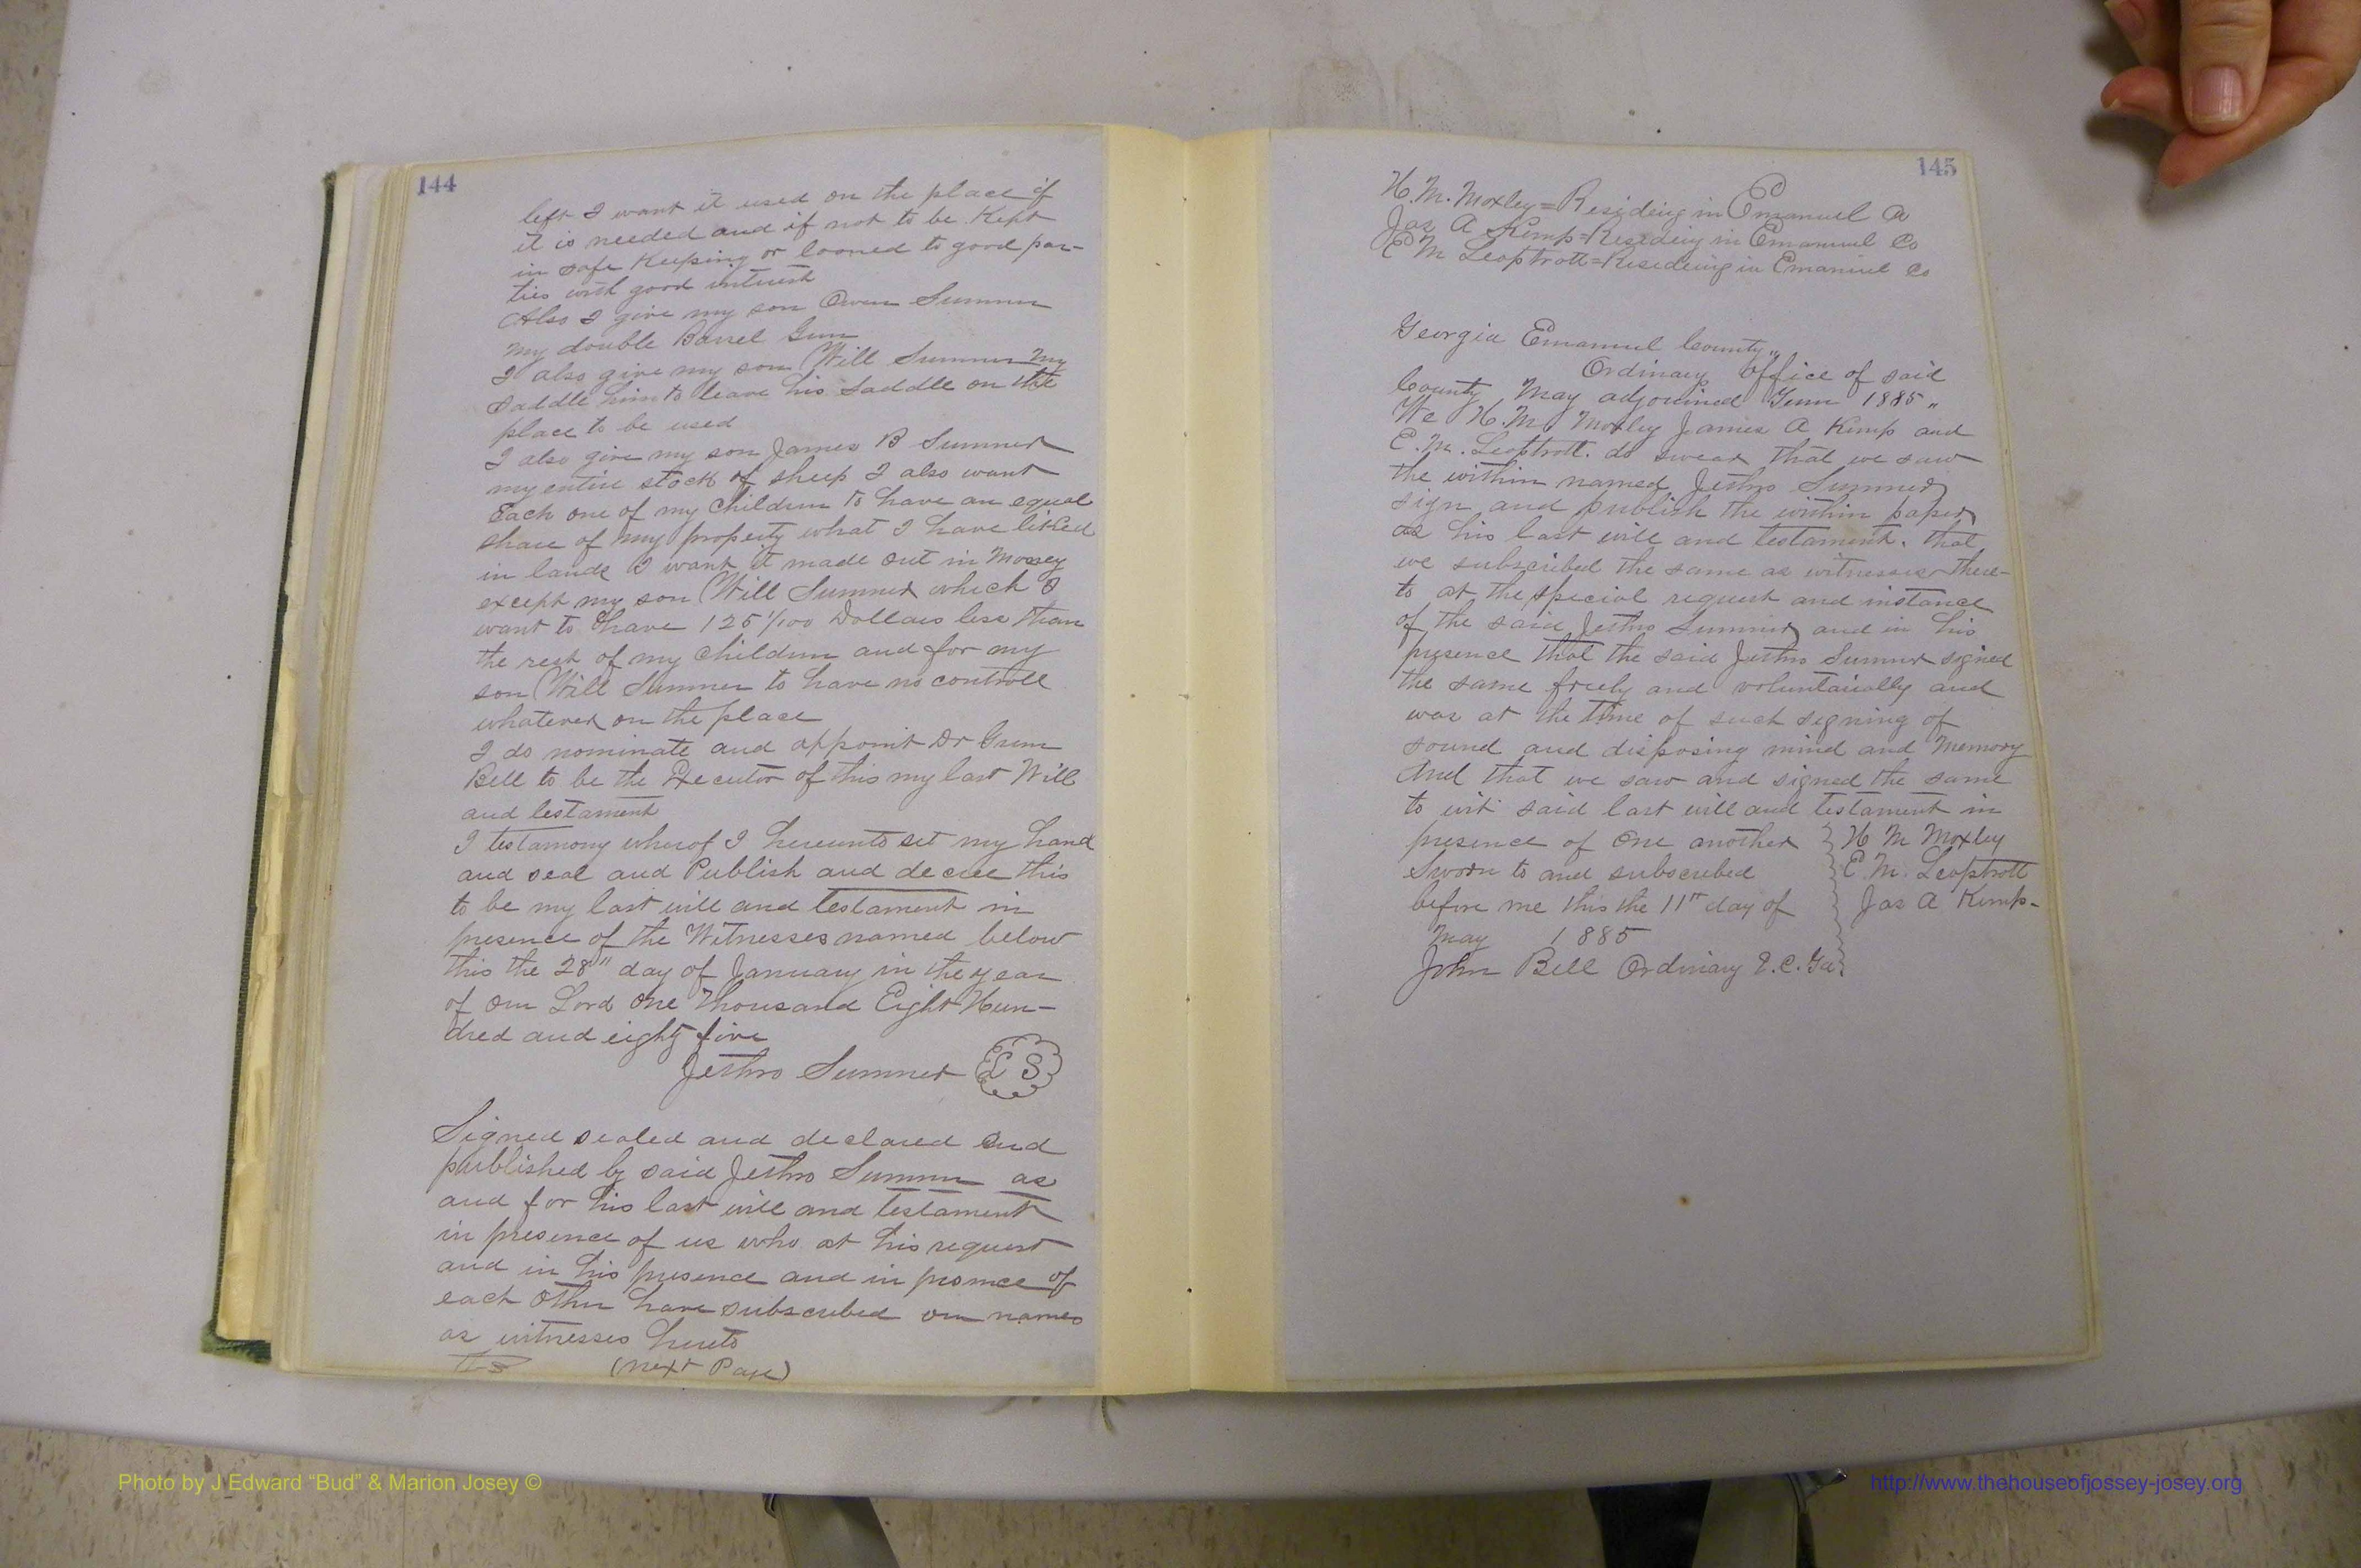 144
left I want it used on the place if
it is needed and if not to be Kept
in safe Keeping or looned to good par-
ties with good intrest
Also I give my son Owen Sumner
my double Barrel Gun
I also give my son Will Sumner my
saddle him to leave his saddle on the
place to be used
I also give my son James B Sumner
my entire stock of sheep I also want
Each one of my Children to have an equal
share of my property what I have
in lands I want it made out in
except my son Will Sumner which I
want to have 125 1/100 Dollars less than
the rest of my children and for my
son Will Sumner to have no controll
whatever on the place
I do nominate and appoint Dr
Bell to be the Executor of this my last Will
and testament
I testamony wherof I hereunto set my hand
and seal and Publish and decree this
to be my last will and testament in
presence of the Witnesses named below
this the 28" day of January in the year
of our Lord one Thousand Eight Hun-
dred and eighty five
Jethro Sumner L S
Signed sealed and declared and
published by said Jethro Sumner as
and for his last will and testament
in presence of us who at his request
and in his presence and in presnce of
each other have subscribed our names
as witnesses hereto
(next Page)
145
H. M. Moxley = Residing in Emanuel Co
Jas A Kemp = Residing in Emanuel Co
E M Leaptrott = Resideing in Emanuel Co
Georgia Emanuel County,,
Ordinary office of said
County May adjourned Term 1885 "
We H. M. Moxley James A Kemp and
E. M. Leaptrott. do swear that we saw
the within named Jethro Sumner
sign and publish the within paper
as his last will and testament. that
we subscribed the same as witnesses there-
to at the special request and instance
of the said Jethro Sumner and in his
presence that the said Jethro Sumner signed
the same freely and voluntarially and
was at the time of such signing of
sound and disposing mind and Memory
And that we saw and signed the same
to wit said last will and testament in
presence of One another } H M Moxley
Sworn to and subscribed } E. M. Leaptrott
before me this the 11th day of } Jas A Kemp-
May 1885
John Bell Ordinary E.C. Ga
Photo by J Edward “Bud” & Marion Josey ©
http://www.thehouseofjossey-josey.org